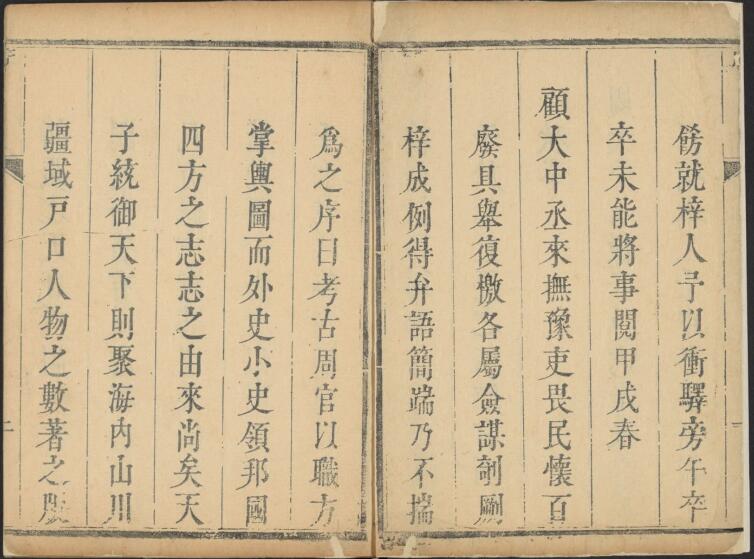 飭就梓人予以衝驛旁午卒
卒未能將事閱甲戌春
顧大中丞來撫豫吏畏民懷百
廢具舉復檄各屬僉謀剞劂
梓成例得弁語簡端乃不揣
為之序曰考古周官以職方
掌輿圖而外史小史領邦國
四方之志志之由來尚矣天
子統御天下則聚海內山川
疆域戸口人物之數著之版